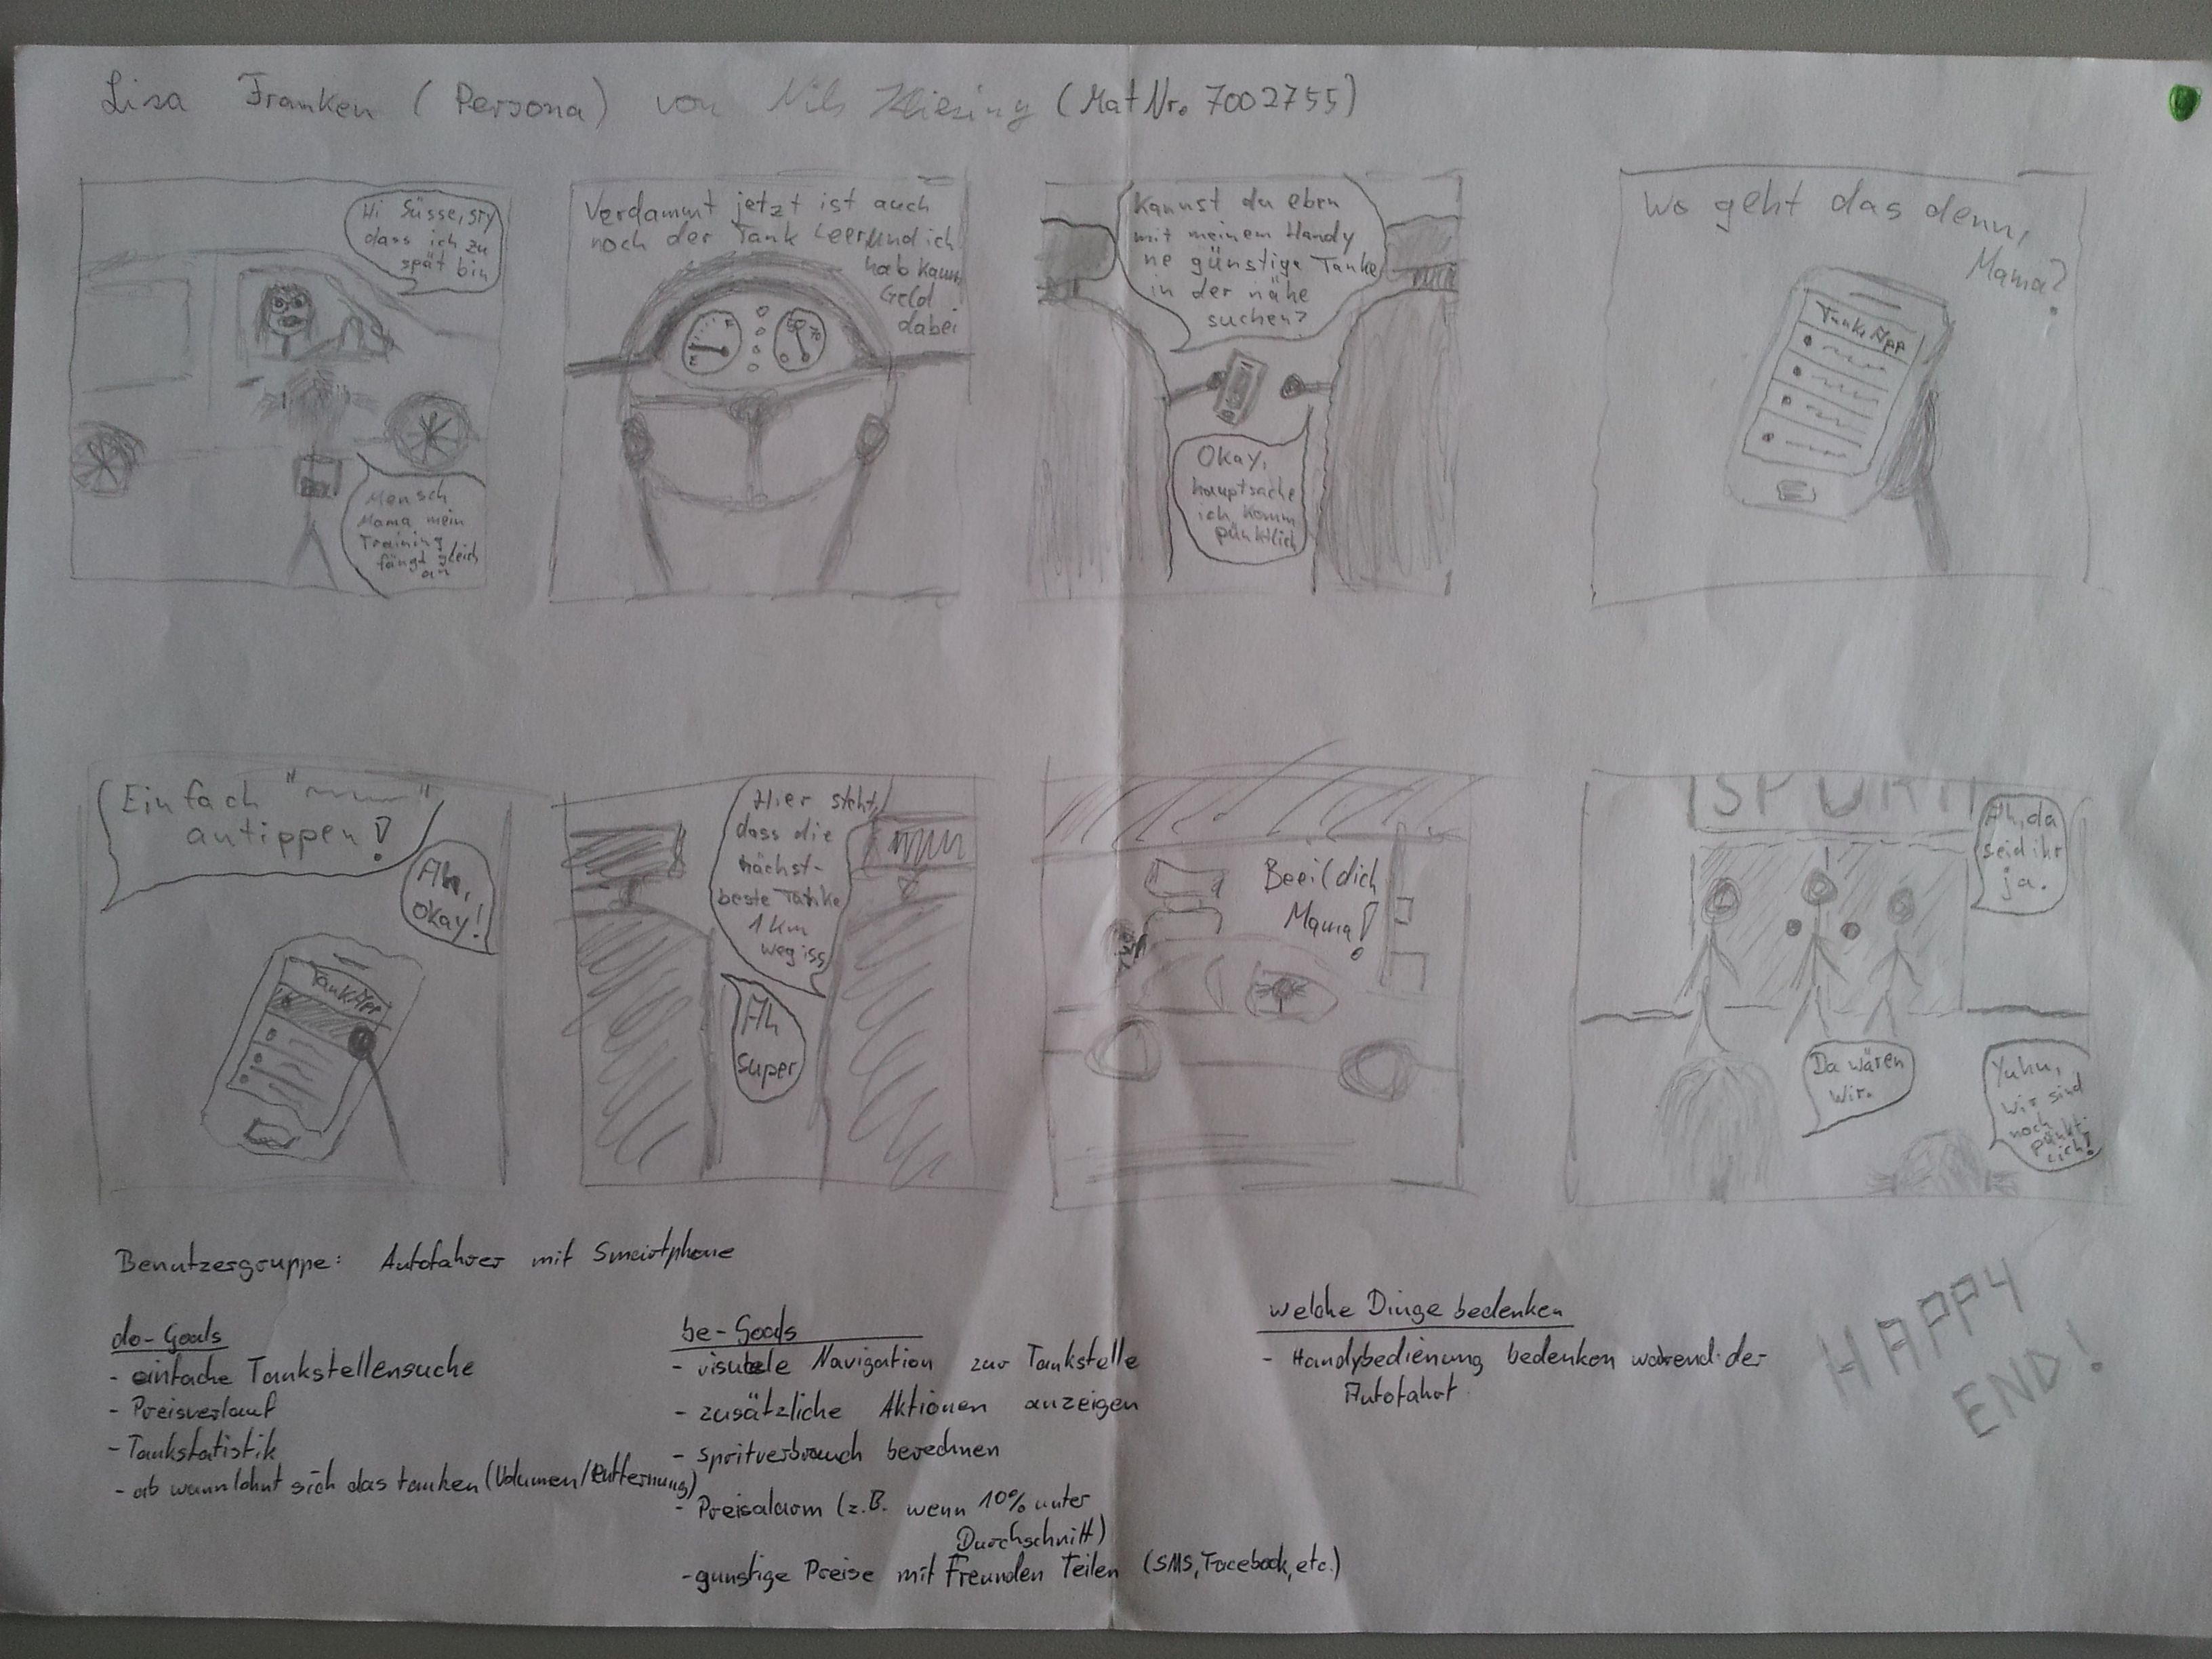 Lisa Franken (Persona) von Nils (MatNr. 7002755)
Hi Süsse, sry
dass ich zu
spät bin
Mensch
Mama mein
Training
fängt gleich
an
Verdammt jetzt ist auch
noch der Tank Leer und ich
hab kaum
Geld
dabei
E
F
Kannst du eben
mit meinem Handy
ne günstige Tanke
in der nähe
suchen?
Okay,
hauptsache
ich komm
pünktlich
Wo geht das denn,
Mama?
TankApp
Einfach "
" antippen!
Ah,
okay!
TankApp
Hier steht,
dass die
nächst-
beste Tanke
1 km
weg iss
Ah
super
Beeil dich
Mama!
SPORT
Ah, da
seid ihr
ja.
Da wären
wir.
Yuhu,
wir sind
noch
pünkt-
lich!
Benutzergruppe: Autofahrer mit Smartphone
do-Goals
- einfache Tankstellensuche
- Preisverlauf
- Tankstatistik
- ab wann lohnt sich das tanken (Volumen/Entfernung)
be-Goals
- visuelle Navigation zur Tankstelle
- zusätzliche Aktionen anzeigen
- Spritverbrauch berechnen
- Preisalarm (z.B. wenn 10% unter
Durchschnitt)
- günstige Preise mit Freunden Teilen (SMS, Facebook, etc.)
welche Dinge bedenken
- Handybedienung bedenken während der
Autofahrt
HAPPY
END!